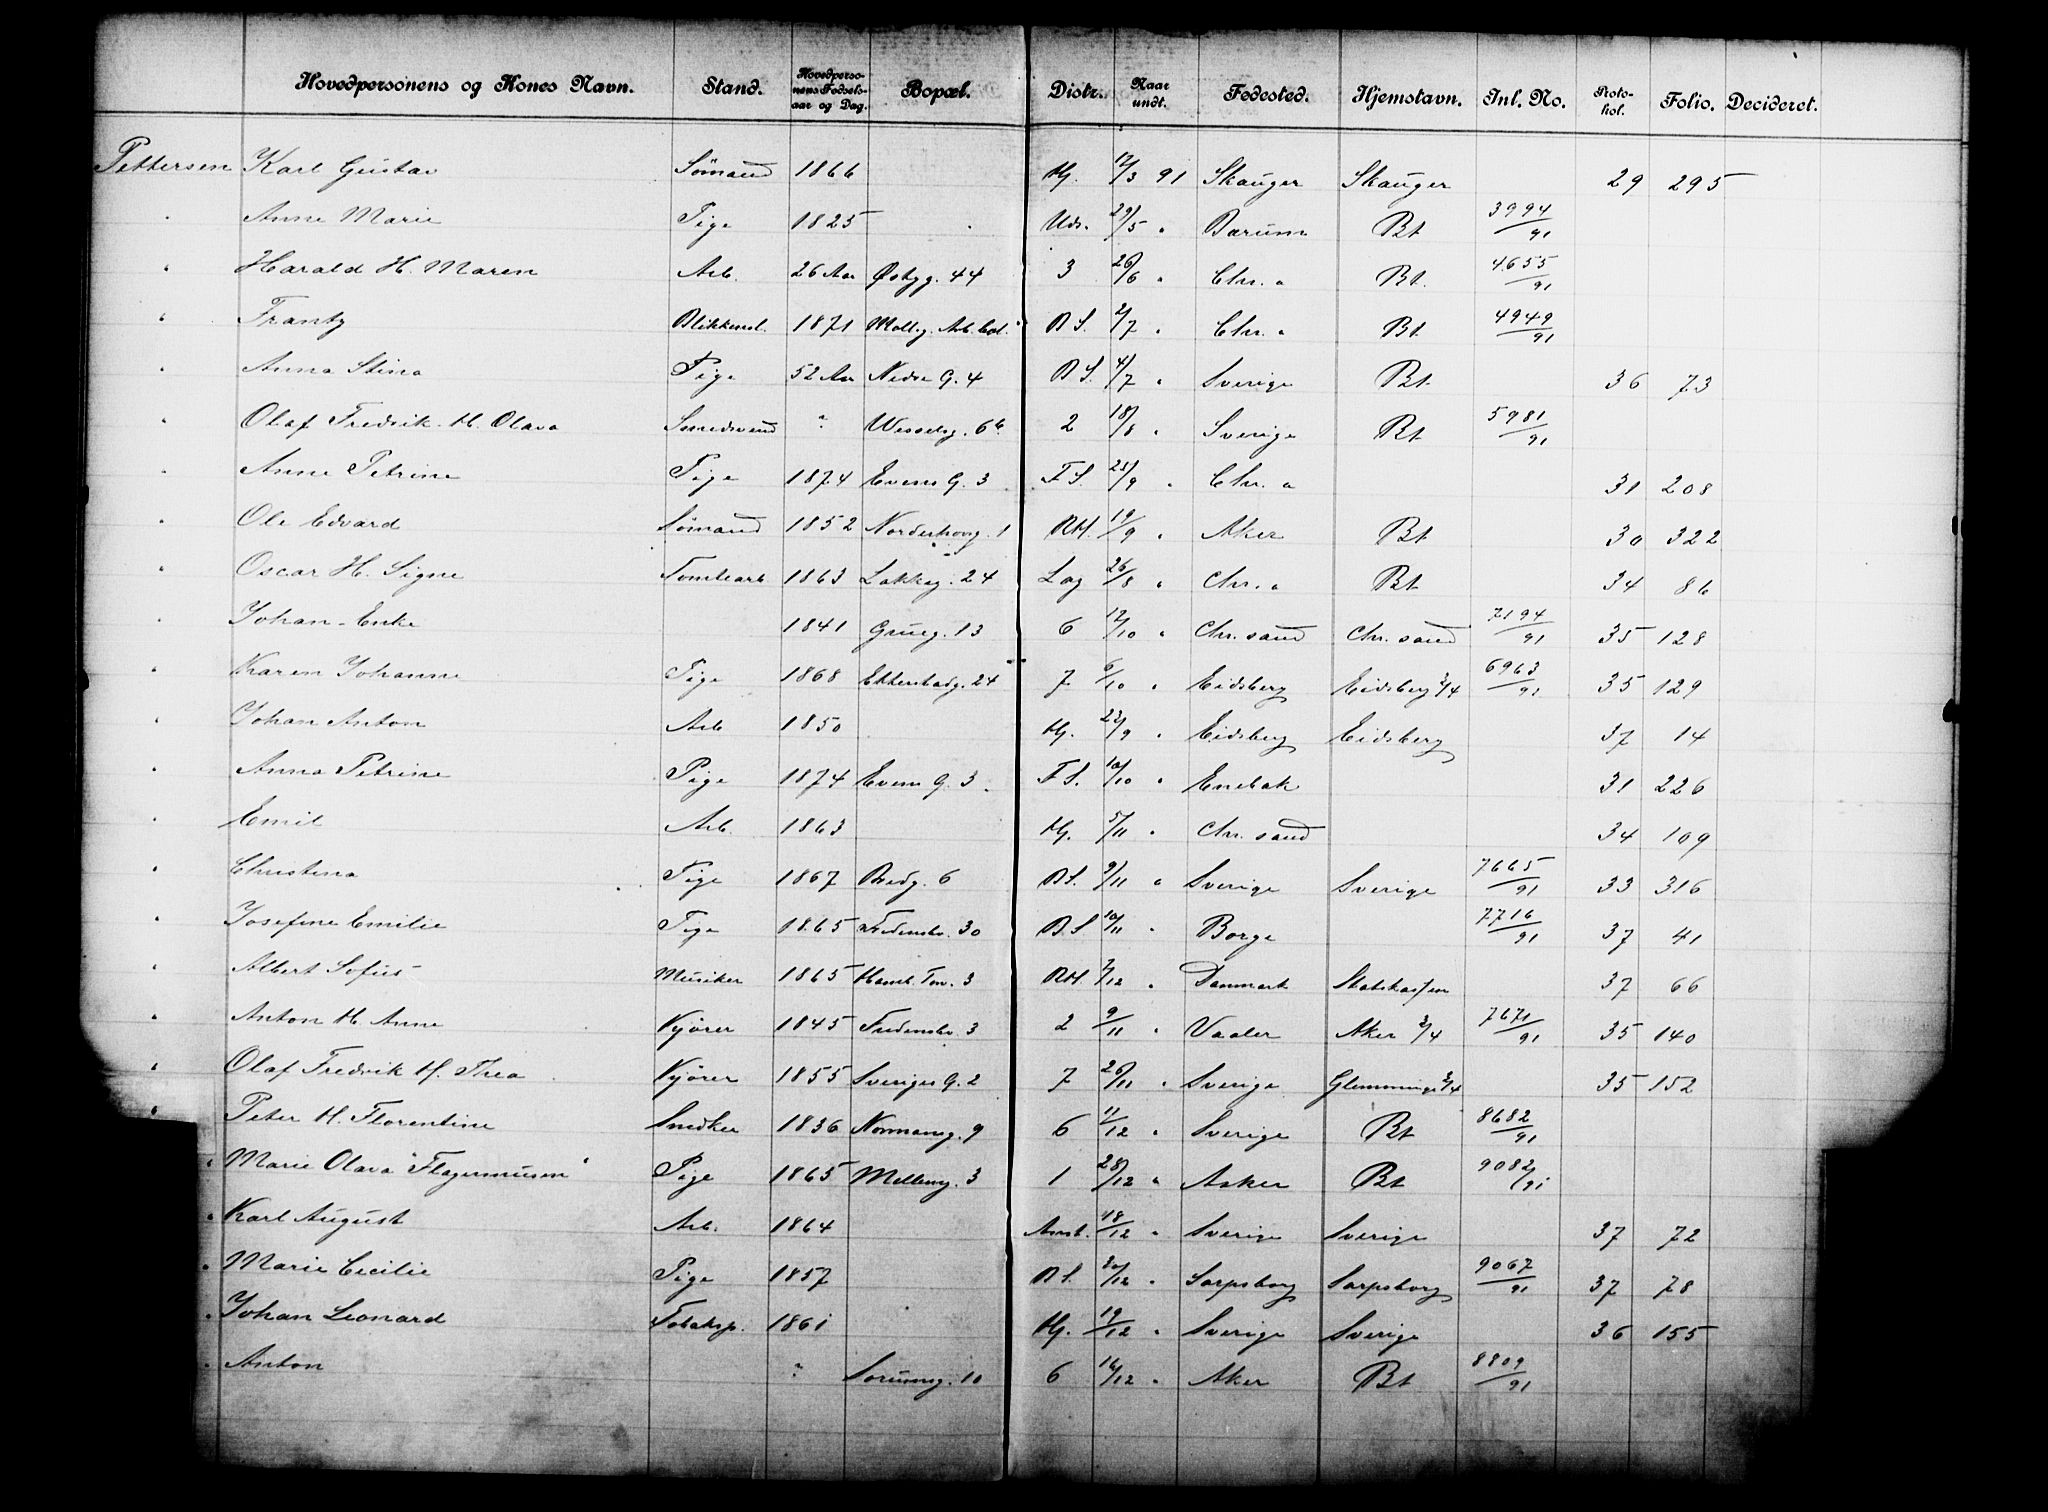 Hovedpersonens og Kones Navn. Stand. Hovedpersonens Fødselsaar og Dag. Bopæl. Distr. Naar undt. Fødested. Hjemstavn. Inl. No. Protokol. Folio. Decideret.
Pettersen Karl Gustav Sømand 1866 Hj. 12/3 91 Skauger Skauger 29 295
" Anne Marie Pige 1825 Uds. 29/5 " Bærum Bt 3994/91
" Harald H. Maren Arb. 26 Aar Østbyg. 44 3 26/6 " Chr. a Bt. 4655/91
" Frantz Blikkensl. 1871 Møllg. Arb. bol. B S. 2/7 " Chr. a Bt 4949/91
" Anna Stina Pige 52 Aar Nedre G. 4 B S. 4/7 " Sverige Bt. 36 73
" Olaf Fredrik H. Olava Smedsvend " Wesselsg. 6b 2 18/8 " Sverige Bt 5981/91
" Anne Petrine Pige 1874 Evens G. 3 F S. 23/9 " Chr. a 31 208
" Ole Edvard Sømand 1852 Norderhovg. 1 RH. 19/9 " Aker Bt 30 322
" Oscar H. Signe Tomtearb 1863 Lakkeg. 24 Lag 26/8 " Chr. a Bt 34 86
" Johan - Enke 1841 Grueg. 13 6 12/10 " Chr. sand Chr. sand 7194/91 35 128
" Karen Johanne Pige 1868 Ekkerbadg. 24 7 6/10 " Eidsberg Eidsberg 2/4 6963/91 35 129
" Johan Anton Arb 1850 Hj. 22/9 " Eidsberg Eidsberg 37 14
" Anna Petrine Pige 1874 Evens G. 3 F S. 10/10 " Enebak 31 226
" Emil Arb. 1863 Hj. 5/11 " Chr. sand 34 109
" Christina Pige 1867 Bredg. 6 B S. 9/11 " Sverige Sverige 7665/91 33 316
" Josefine Emilie Pige 1865 Fredensbo. 30 B. S 10/11 " Borge 7716/91 37 41
" Albert Sofus Musiker 1865 Hamb. Tov. 3 RH. 2/12 " Danmark Statskassen 37 66
" Anton H. Anne Kjører 1845 Fredensbo. 3 2 9/11 " Vaaler Aker 2/4 7671/91 35 140
" Olaf Fredrik H. Thea Kjører 1855 Sveriges G. 2 7 26/11 " Sverige Glemminge 2/4 35 152
" Peter H. Florentine Snedker 1836 Normansg. 9 6 11/12 " Sverige Bt 8682/91
" Marie Olava "Flagermusen" Pige 1865 Mellemg. 3 1 28/12 " Asker Bt 9082/91
" Karl August Arb. 1864 Arrest. 18/12 " Sverige Sverige 37 72
" Marie Cecilie Pige 1857 B S. 30/12 " Sarpsborg Sarpsborg 9067/91 37 78
" Johan Leonard Tobaksp. 1861 Hj. 19/12 " Sverige Sverige 36 155
" Anton " Sorumsg. 10 6 16/12 " Aker Bt 8809/91